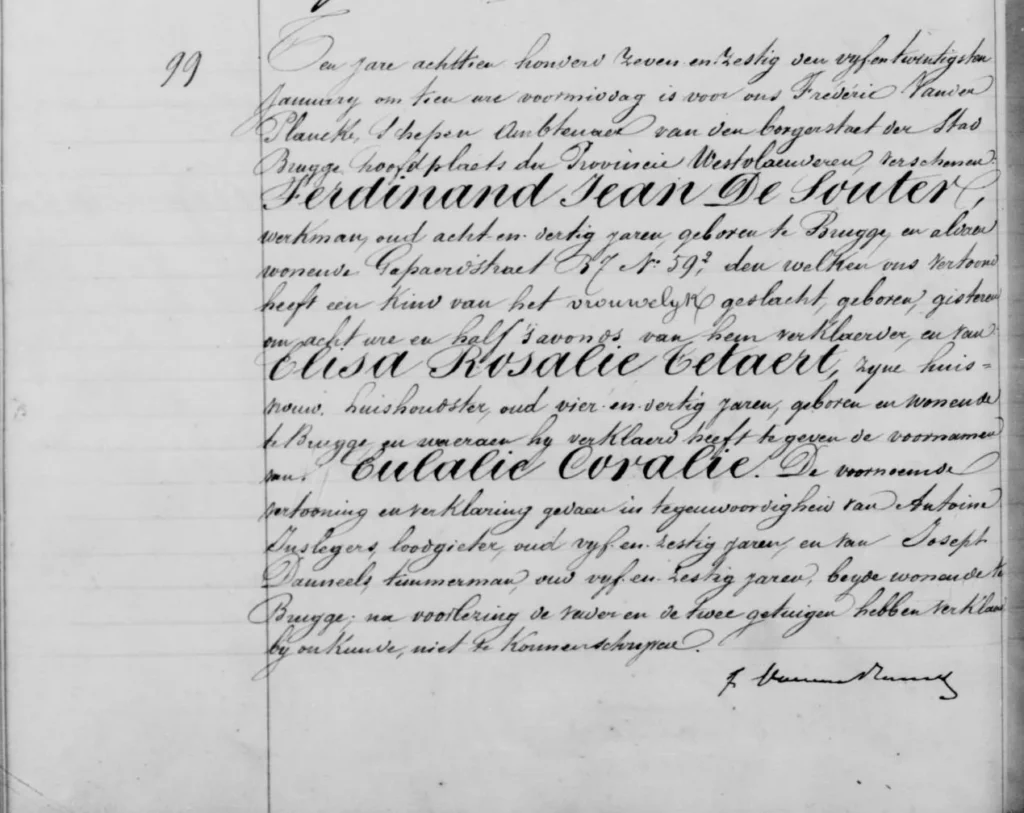 99
Ten jare achttien honderd zeven-en-zestig den vyf en twintigsten
January om tien ure voormiddag is voor ons Frédéric Vander
Plancke, Schepen Ambtenaer van den borgerstaet der Stad
Brugge hoofdplaets der Provincie Westvlaenderen, verschenen
Ferdinand Jean De Souter,
werkman, oud acht-en-dertig jaren, geboren te Brugge, en aldaer
wonende Gapaerdstraet B7 No 59², den welken ons vertoond
heeft een kind van het vrouwelyk geslacht, geboren, gisteren
om acht ure en half 's avonds van hem verklaerder, en van
Elisa Rosalie Tetaert, zyne huis=
vrouw, huishoudster, oud vier-en-dertig jaren, geboren en wonende
te Brugge, en waeraen hy verklaerd heeft te geven de voornamen
van Eulalie Coralie. De voornoemde
vertooning en verklaring gedaen in tegenwoordigheid van Antoine
Inslegers, loodgieter, oud vyf-en-zestig jaren, en van Joseph
Danneels, timmerman, oud vyf-en-zestig jaren, beyde wonende te
Brugge; na voorlezing de vader en de twee getuigen hebben verklaerd
by onkunde, niet te konnen schryven.